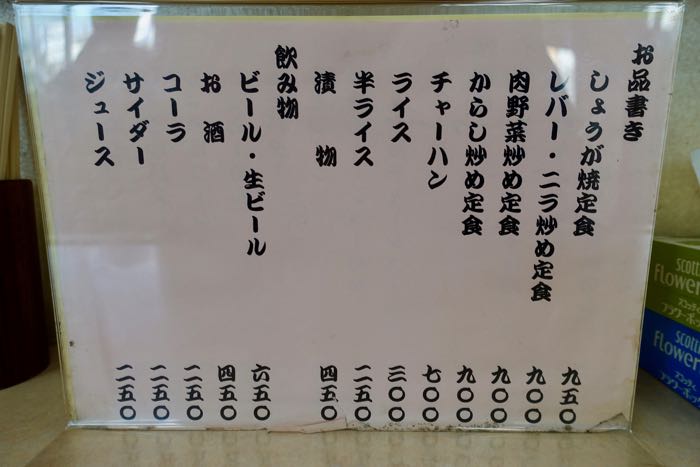 お品書き
しょうが焼定食 九五〇
レバー・ニラ炒め定食 九〇〇
肉野菜炒め定食 九〇〇
からし炒め定食 九〇〇
チャーハン 七〇〇
ライス 三〇〇
半ライス 二五〇
漬物 四五〇
飲み物
ビール・生ビール 六五〇
お酒 四五〇
コーラ 二五〇
サイダー 二五〇
ジュース 二五〇
SCOTT
Flower
SCOTT
Flower